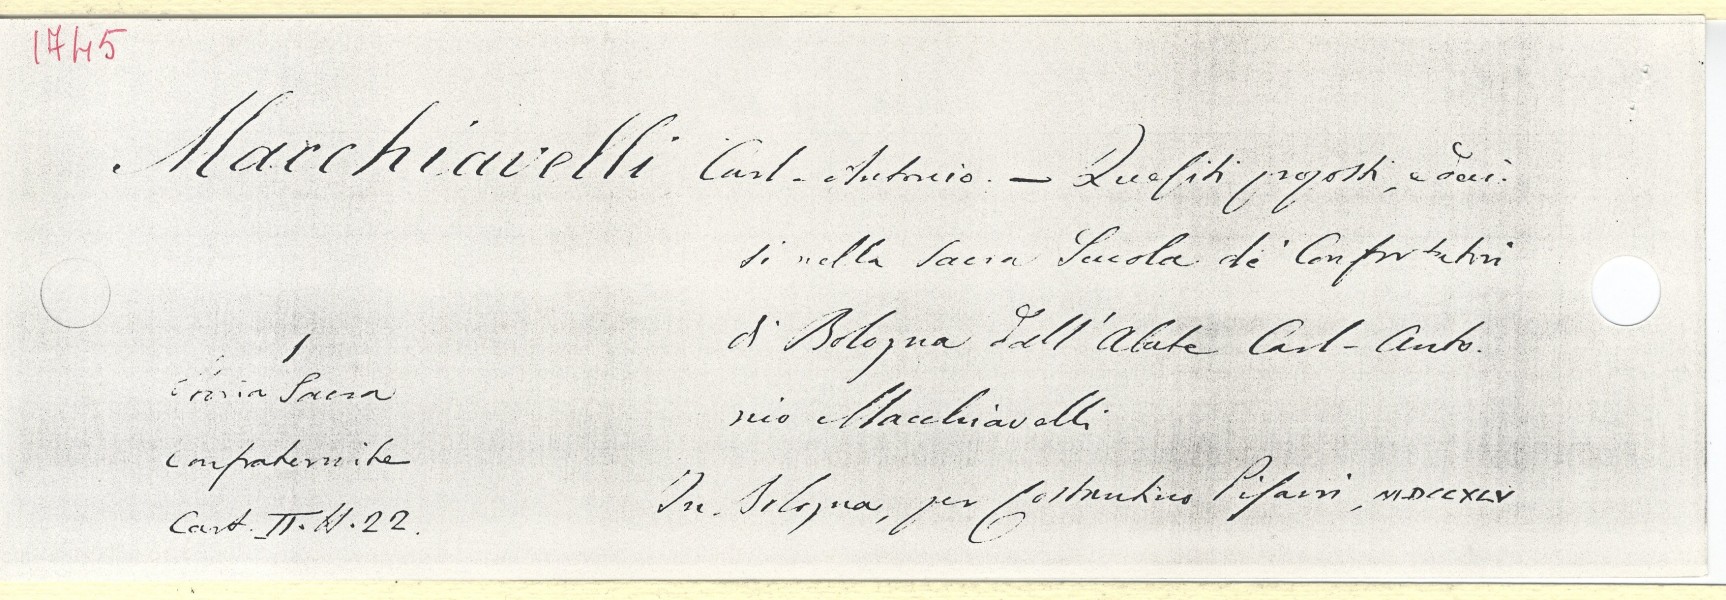 1745
Macchiavelli Carl-Antonio. — Quesiti proposti, e deci-
si nella Sacra Scuola de' Confortatori
di Bologna dall'Abate Carl-Anto-
nio Macchiavelli
In Bologna, per Costantino Pisarri, MDCCXLV
Sacra
Confraternite
Cart. II. H. 22.